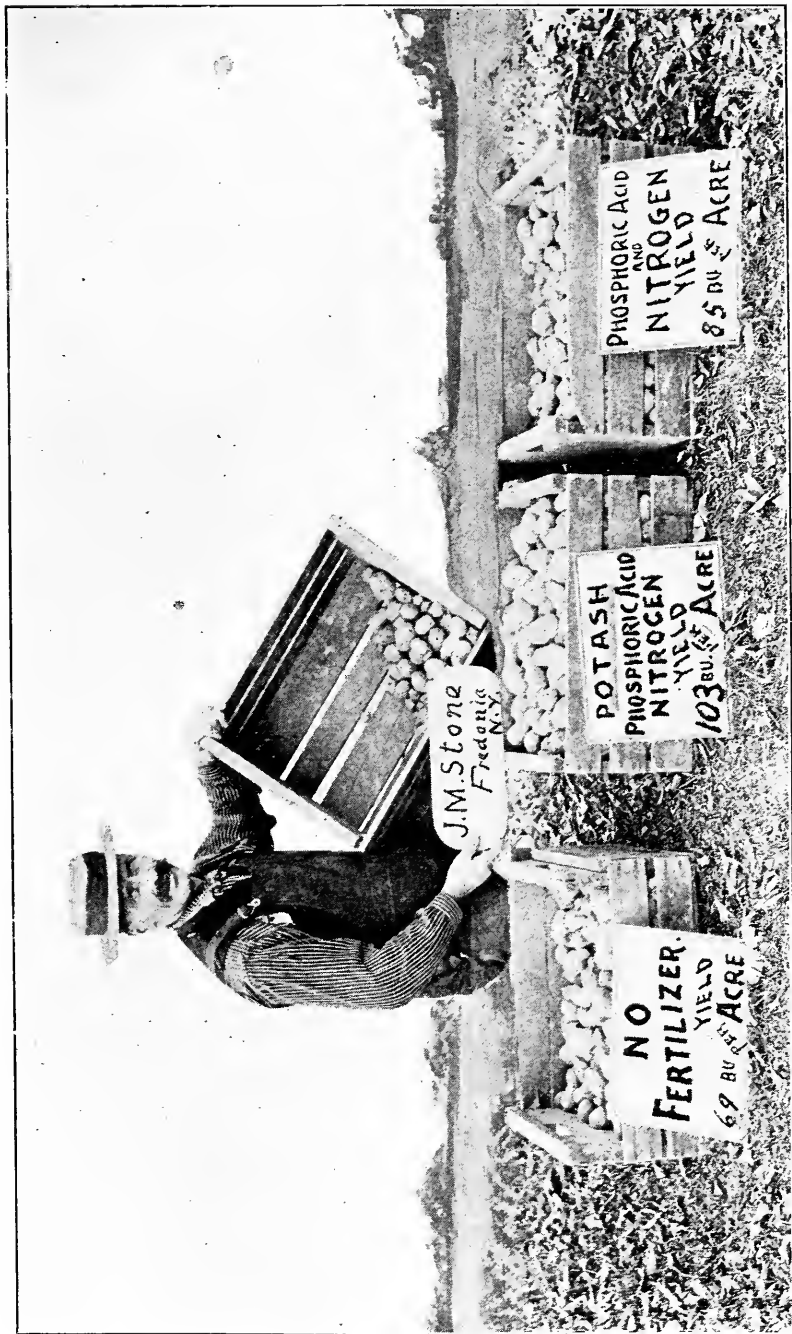 J.M. Stone
Fredonia
N.Y.
NO
FERTILIZER.
YIELD
69 BU PER ACRE
POTASH
PHOSPHORIC ACID
NITROGEN
YIELD
103 BU. PER ACRE
PHOSPHORIC ACID
AND
NITROGEN
YIELD
85 BU PER ACRE